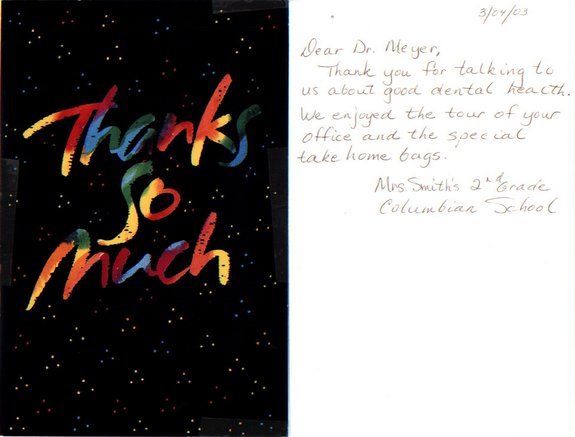 Thanks
So
Much
3/04/03
Dear Dr. Meyer,
Thank you for talking to
us about good dental health.
We enjoyed the tour of your
office and the special
take home bags.
Mrs. Smith's 2nd Grade
Columbian School